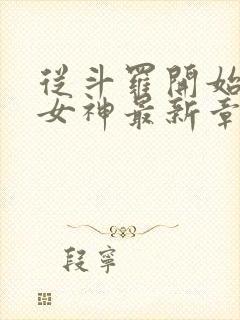 從斗羅開始
女神最新章
段寧